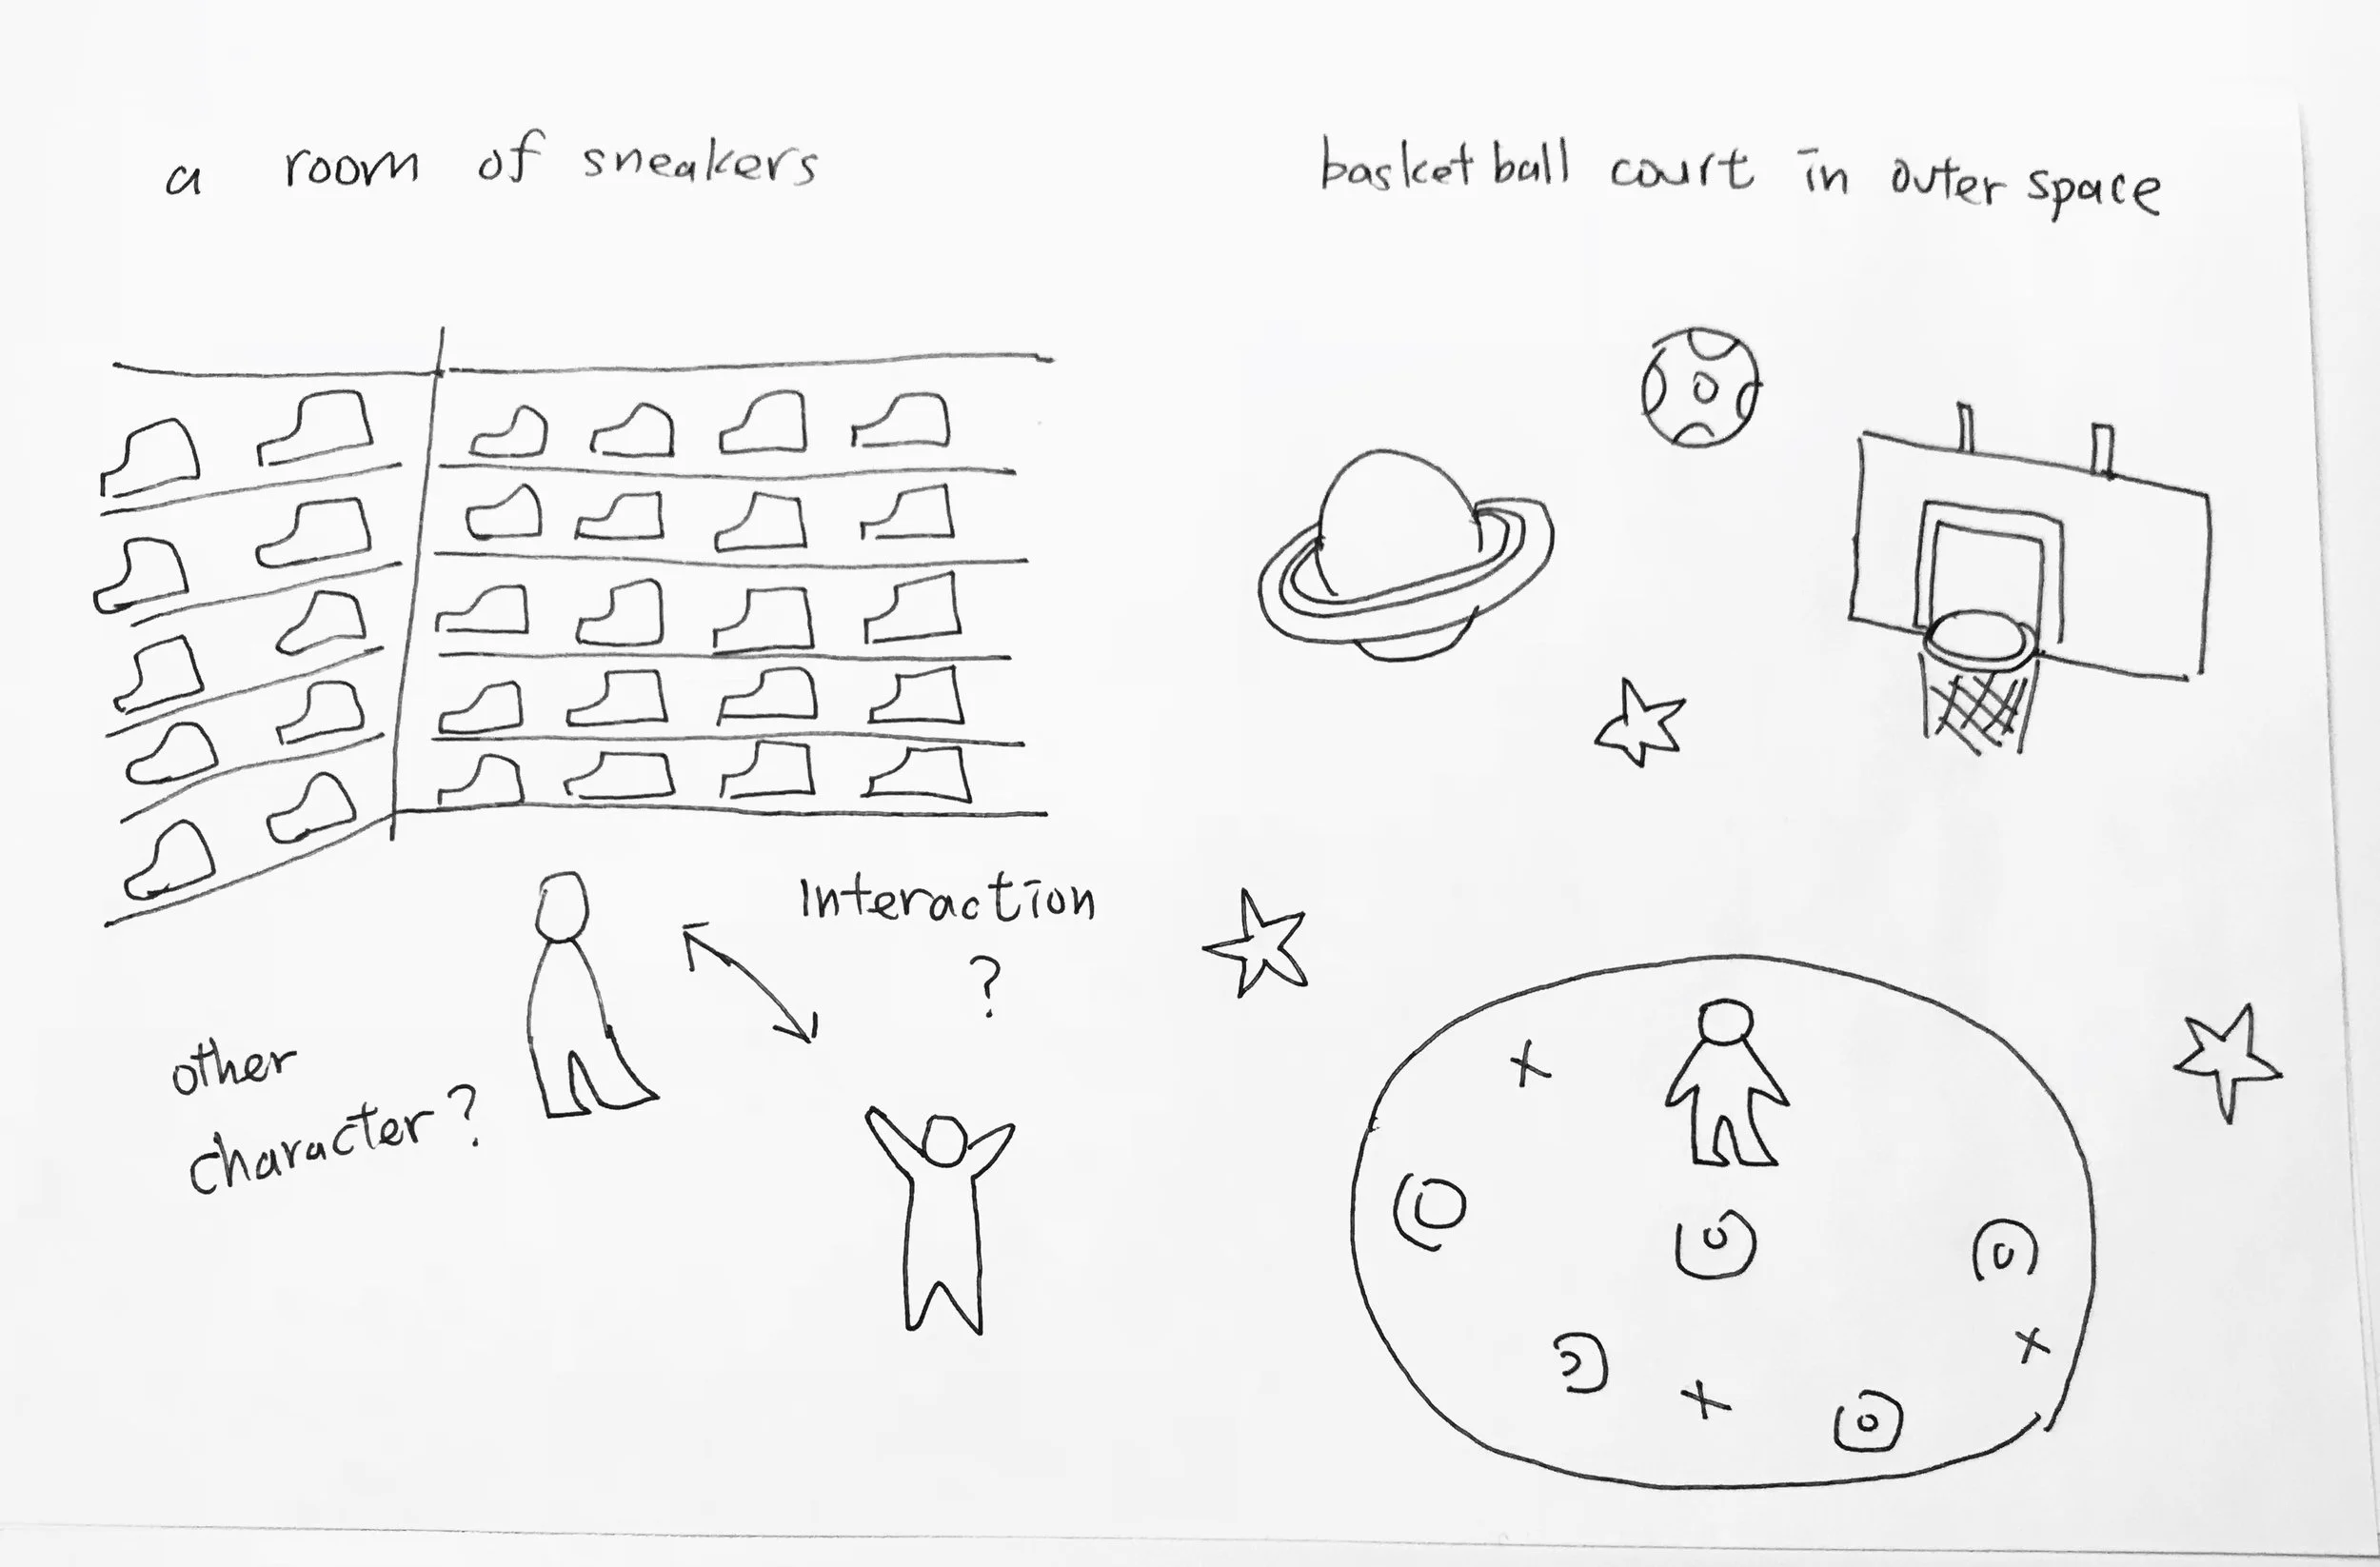 a room of sneakers
basketball court in outer space
Interaction
?
other
character?